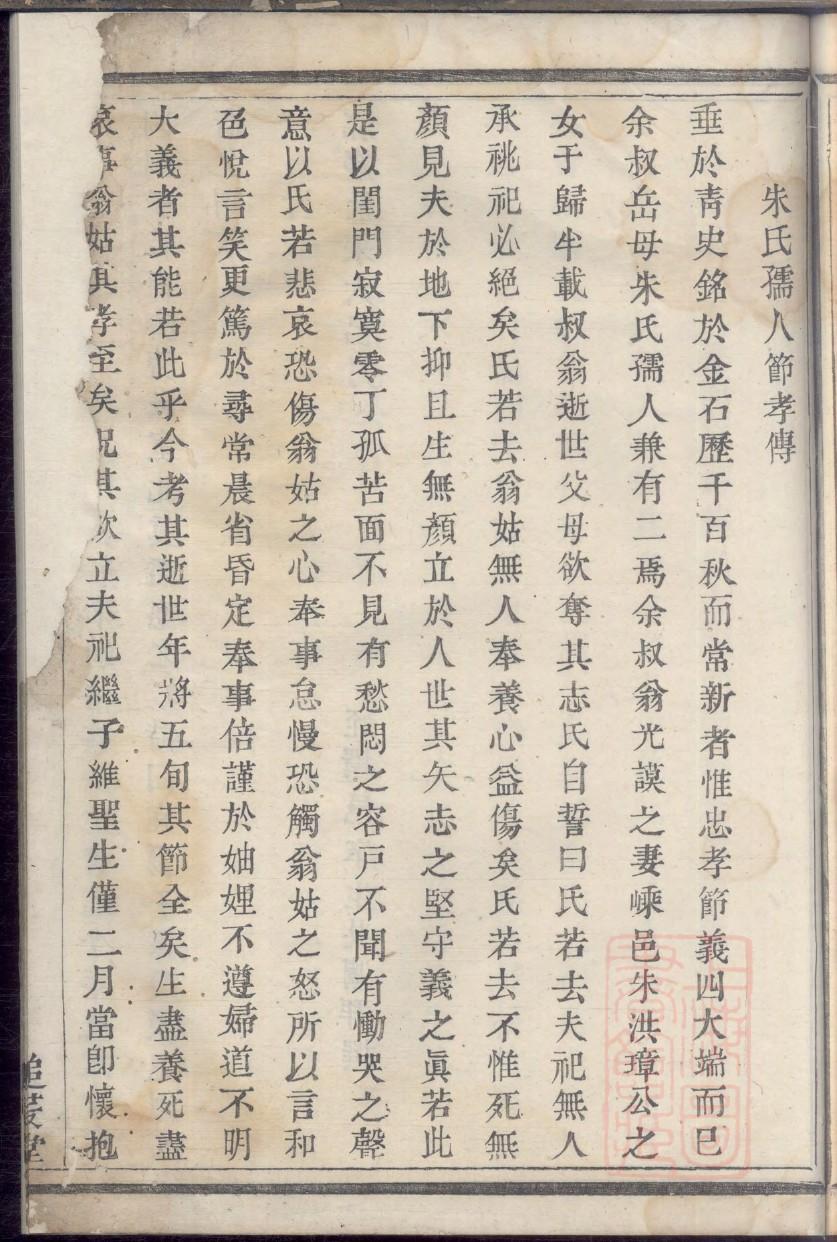 朱氏孺人節孝傳
垂於青史銘於金石歷千百秋而常新者惟忠孝節義四大端而已
余叔岳母朱氏孺人兼有二焉余叔翁光謨之妻嵊邑朱洪璋公之
女于歸半載叔翁逝世父母欲奪其志氏自誓曰氏若去夫祀無人
承祧祀必絕矣氏若去翁姑無人奉養心益傷矣氏若去不惟死無
顏見夫於地下抑且生無顏立於人世其矢志之堅守義之眞若此
是以閨門寂寞零丁孤苦面不見有愁悶之容戸不聞有慟哭之聲
意以氏若悲哀恐傷翁姑之心奉事怠慢恐觸翁姑之怒所以言和
色悅言笑更篤於尋常晨省昏定奉事倍謹於妯娌不遵婦道不明
大義者其能若此乎今考其逝世年將五旬其節全矣生盡養死盡
哀事翁姑其孝至矣況其欲立夫祀繼子維聖生僅二月當卽懷抱